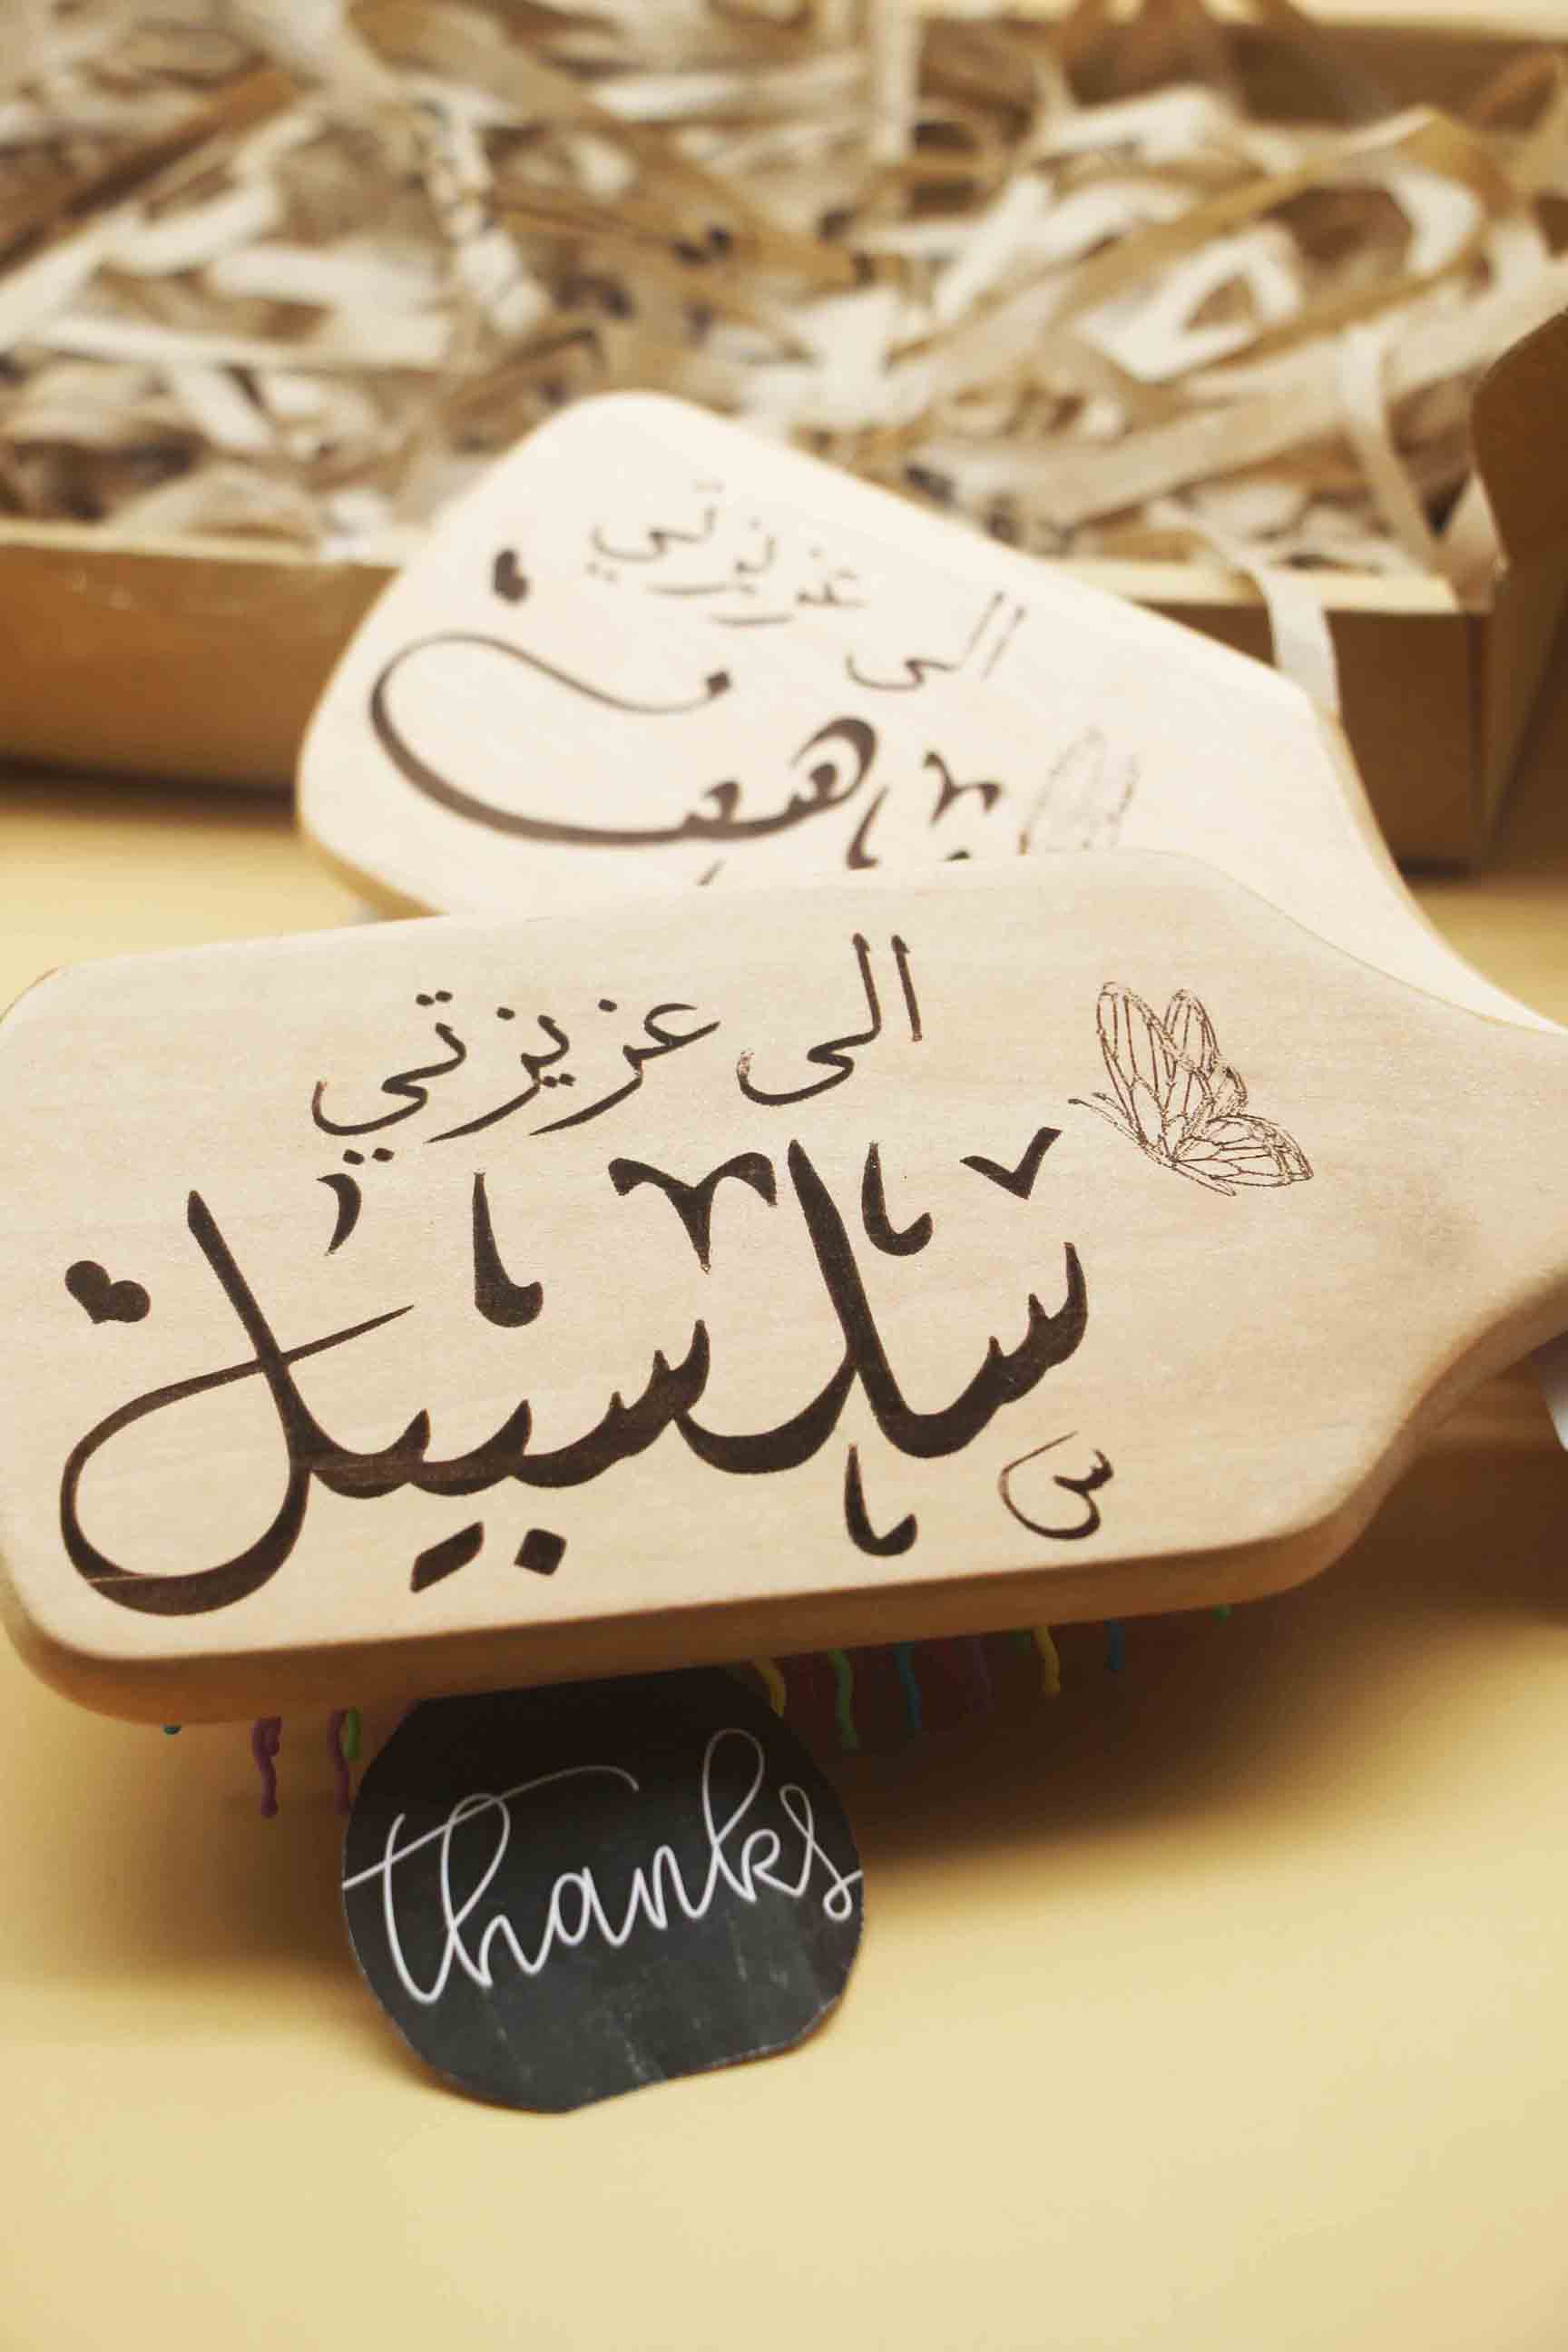 الى عزيزتي
الى عزيزتي
سلسبيل
thanks